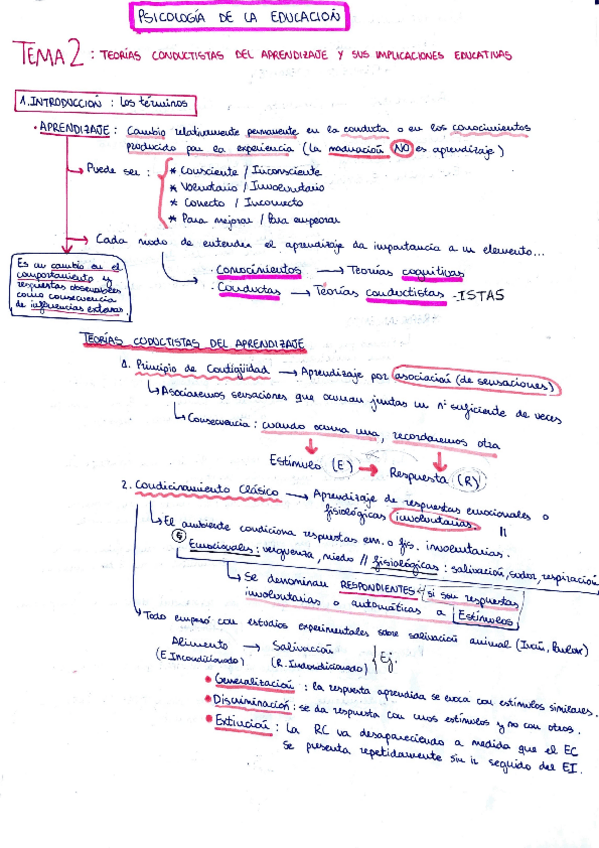 PSICOLOGÍA DE LA EDUCACIÓN
TEMA 2: TEORÍAS CONDUCTISTAS DEL APRENDIZAJE Y SUS IMPLICACIONES EDUCATIVAS
1. INTRODUCCIÓN: Los términos
· APRENDIZAJE: Cambio relativamente permanente en la conducta o en los conocimientos
producido por la experiencia (La maduración NO es aprendizaje)
→ Puede ser:
* Consciente / Inconsciente
* Voluntario / Involuntario
* Correcto / Incorrecto
* Para mejorar / Para empeorar
→ Cada modo de entender el aprendizaje da importancia a un elemento...
Es un cambio en el
comportamiento y
respuestas observables
como consecuencia
de influencias externas.
· Conocimientos → Teorías cognitivas
· Conductas → Teorías conductistas -ISTAS
TEORÍAS CODUCTISTAS DEL APRENDIZAJE
1. Principio de Contigüidad → Aprendizaje por asociación (de sensaciones)
↳ Asociaremos sensaciones que ocurran juntas un nº suficiente de veces
↳ Consecuencia: cuando ocurra una, recordaremos otra
Estímulo (E) → Respuesta (R)
2. Condicionamiento Clásico → Aprendizaje de respuestas emocionales o
fisiológicas involuntarias.
↳ El ambiente condiciona respuestas em. o fis. involuntarias.
Emocionales: vergüenza, miedo // fisiológicas: salivación, sudor, respiración
↳ Se denominan RESPONDIENTES si son respuestas
involuntarias o automáticas a Estímulos
↳ Todo empezó con estudios experimentales sobre salivación animal (Iván, Paulov)
Alimento → Salivación } Ej.
(E. Incondicionado) (R. Incondicionado)
• Generalización: la respuesta aprendida se evoca con estímulos similares.
• Discriminación: se da respuesta con unos estímulos y no con otros.
• Extinción: La RC va desapareciendo a medida que el EC
se presenta repetidamente sin ir seguido del EI.